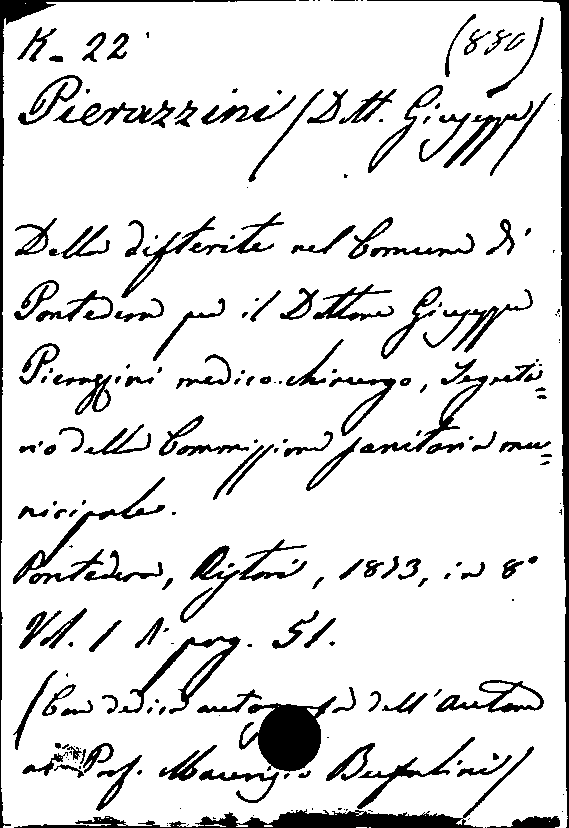 K- 22 (880)
Pierazzini (Dott. Giuseppe)
Della difterite nel Comune di
Pontedera per il Dottore Giuseppe
Pierazzini medico-chirurgo, Segreta=
rio della Commissione sanitaria mu=
nicipale.
Pontedera, Ristori, 1873, in 8°
Vol. 1 di pag. 51.
(Con dedica autografa dell'Autore
al Prof. Maurizio Bufalini)